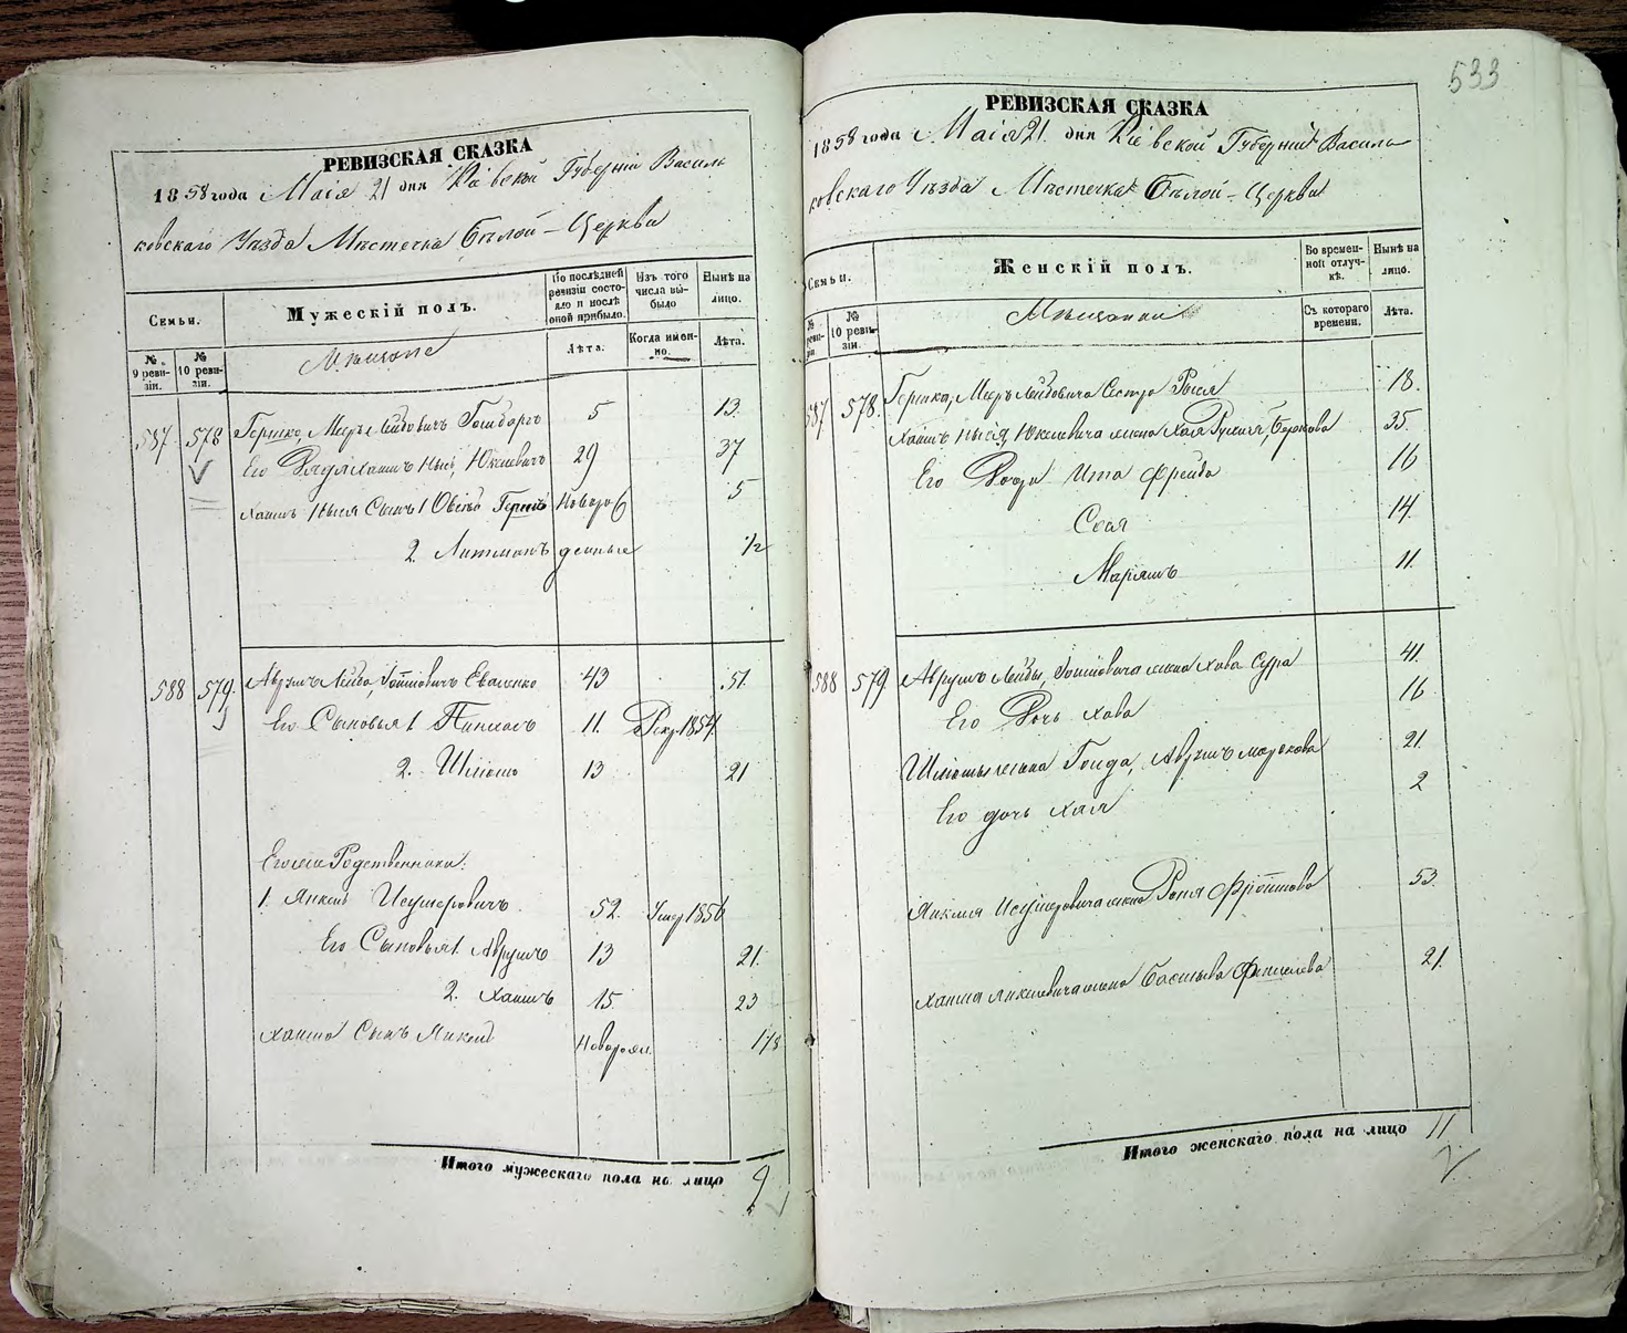 533
РЕВИЗСКАЯ СКАЗКА
1858 года Маія 21 дня Кіевской Губерніи Василь
ковскаго Уѣзда Мѣстечка Бѣлой-Церкви
Семьи.
Мужескій полъ.
По послѣдней ревизіи состояло и послѣ оной прибыло.
Изъ того числа выбыло
Нынѣ на лицо.
№ 9 ревизіи.
№ 10 ревизіи.
Мѣщане
Лѣта.
Когда именно.
Лѣта.
587 578 Гершко, Меръ Лейбовичъ 5 13.
Его Дядя Хаимъ Нысь, Юкелевичъ 29 37
Хаимъ Ныся Сынъ 1 Гершъ Новоро 5
2. Литманъ денные 1/2
588 579. Аврумъ Лейба, 43 51.
Его Сыновья 1 Пинхасъ 11. Рекр. 1854.
2. Шліомо 13 21
Его же Родственники:
1. Янкель Исумеровичъ 52. Умер. 1856
Его Сыновья 1. Аврумъ 13 21.
2. Хаимъ 15. 23
Хаима Сынъ Янкель Новорож.
Итого мужескаго пола на лицо 9
РЕВИЗСКАЯ СКАЗКА
1858 года Маія 21. дня Кіевской Губерніи Василь
ковскаго Уѣзда Мѣстечка Бѣлой-Церкви
Семьи.
Женскій полъ.
Во временной отлучкѣ.
Нынѣ на лицо.
№ 10 ревизіи.
Мѣщанки
Съ котораго времени.
Лѣта.
587 578. Гершка, Меръ Лейбовича Сестра Рыся 18.
Хаимъ Ныся, Юкелевича жена Хая Берковa 35.
Его Дочь Ита Фрейда 16
Сося 14.
Маріямъ 11.
588 579. Аврумъ Лейбы, жена Хава Сура 41.
Его Дочь Хава 16
Шліомы жена Голда, Аврумъ 21.
Его дочь Хая 2
Янкеля Исумеровича жена 53.
Хаима Янкелевича жена 21.
Итого женскаго пола на лицо 11